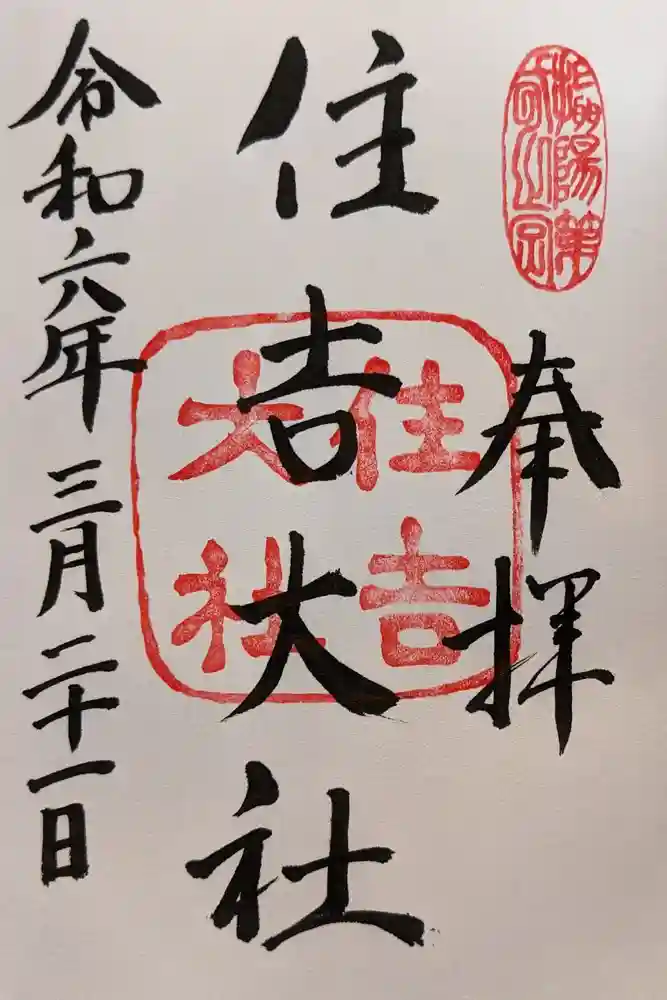 奉拝
住吉大社
住吉
大社
令和六年三月二十一日